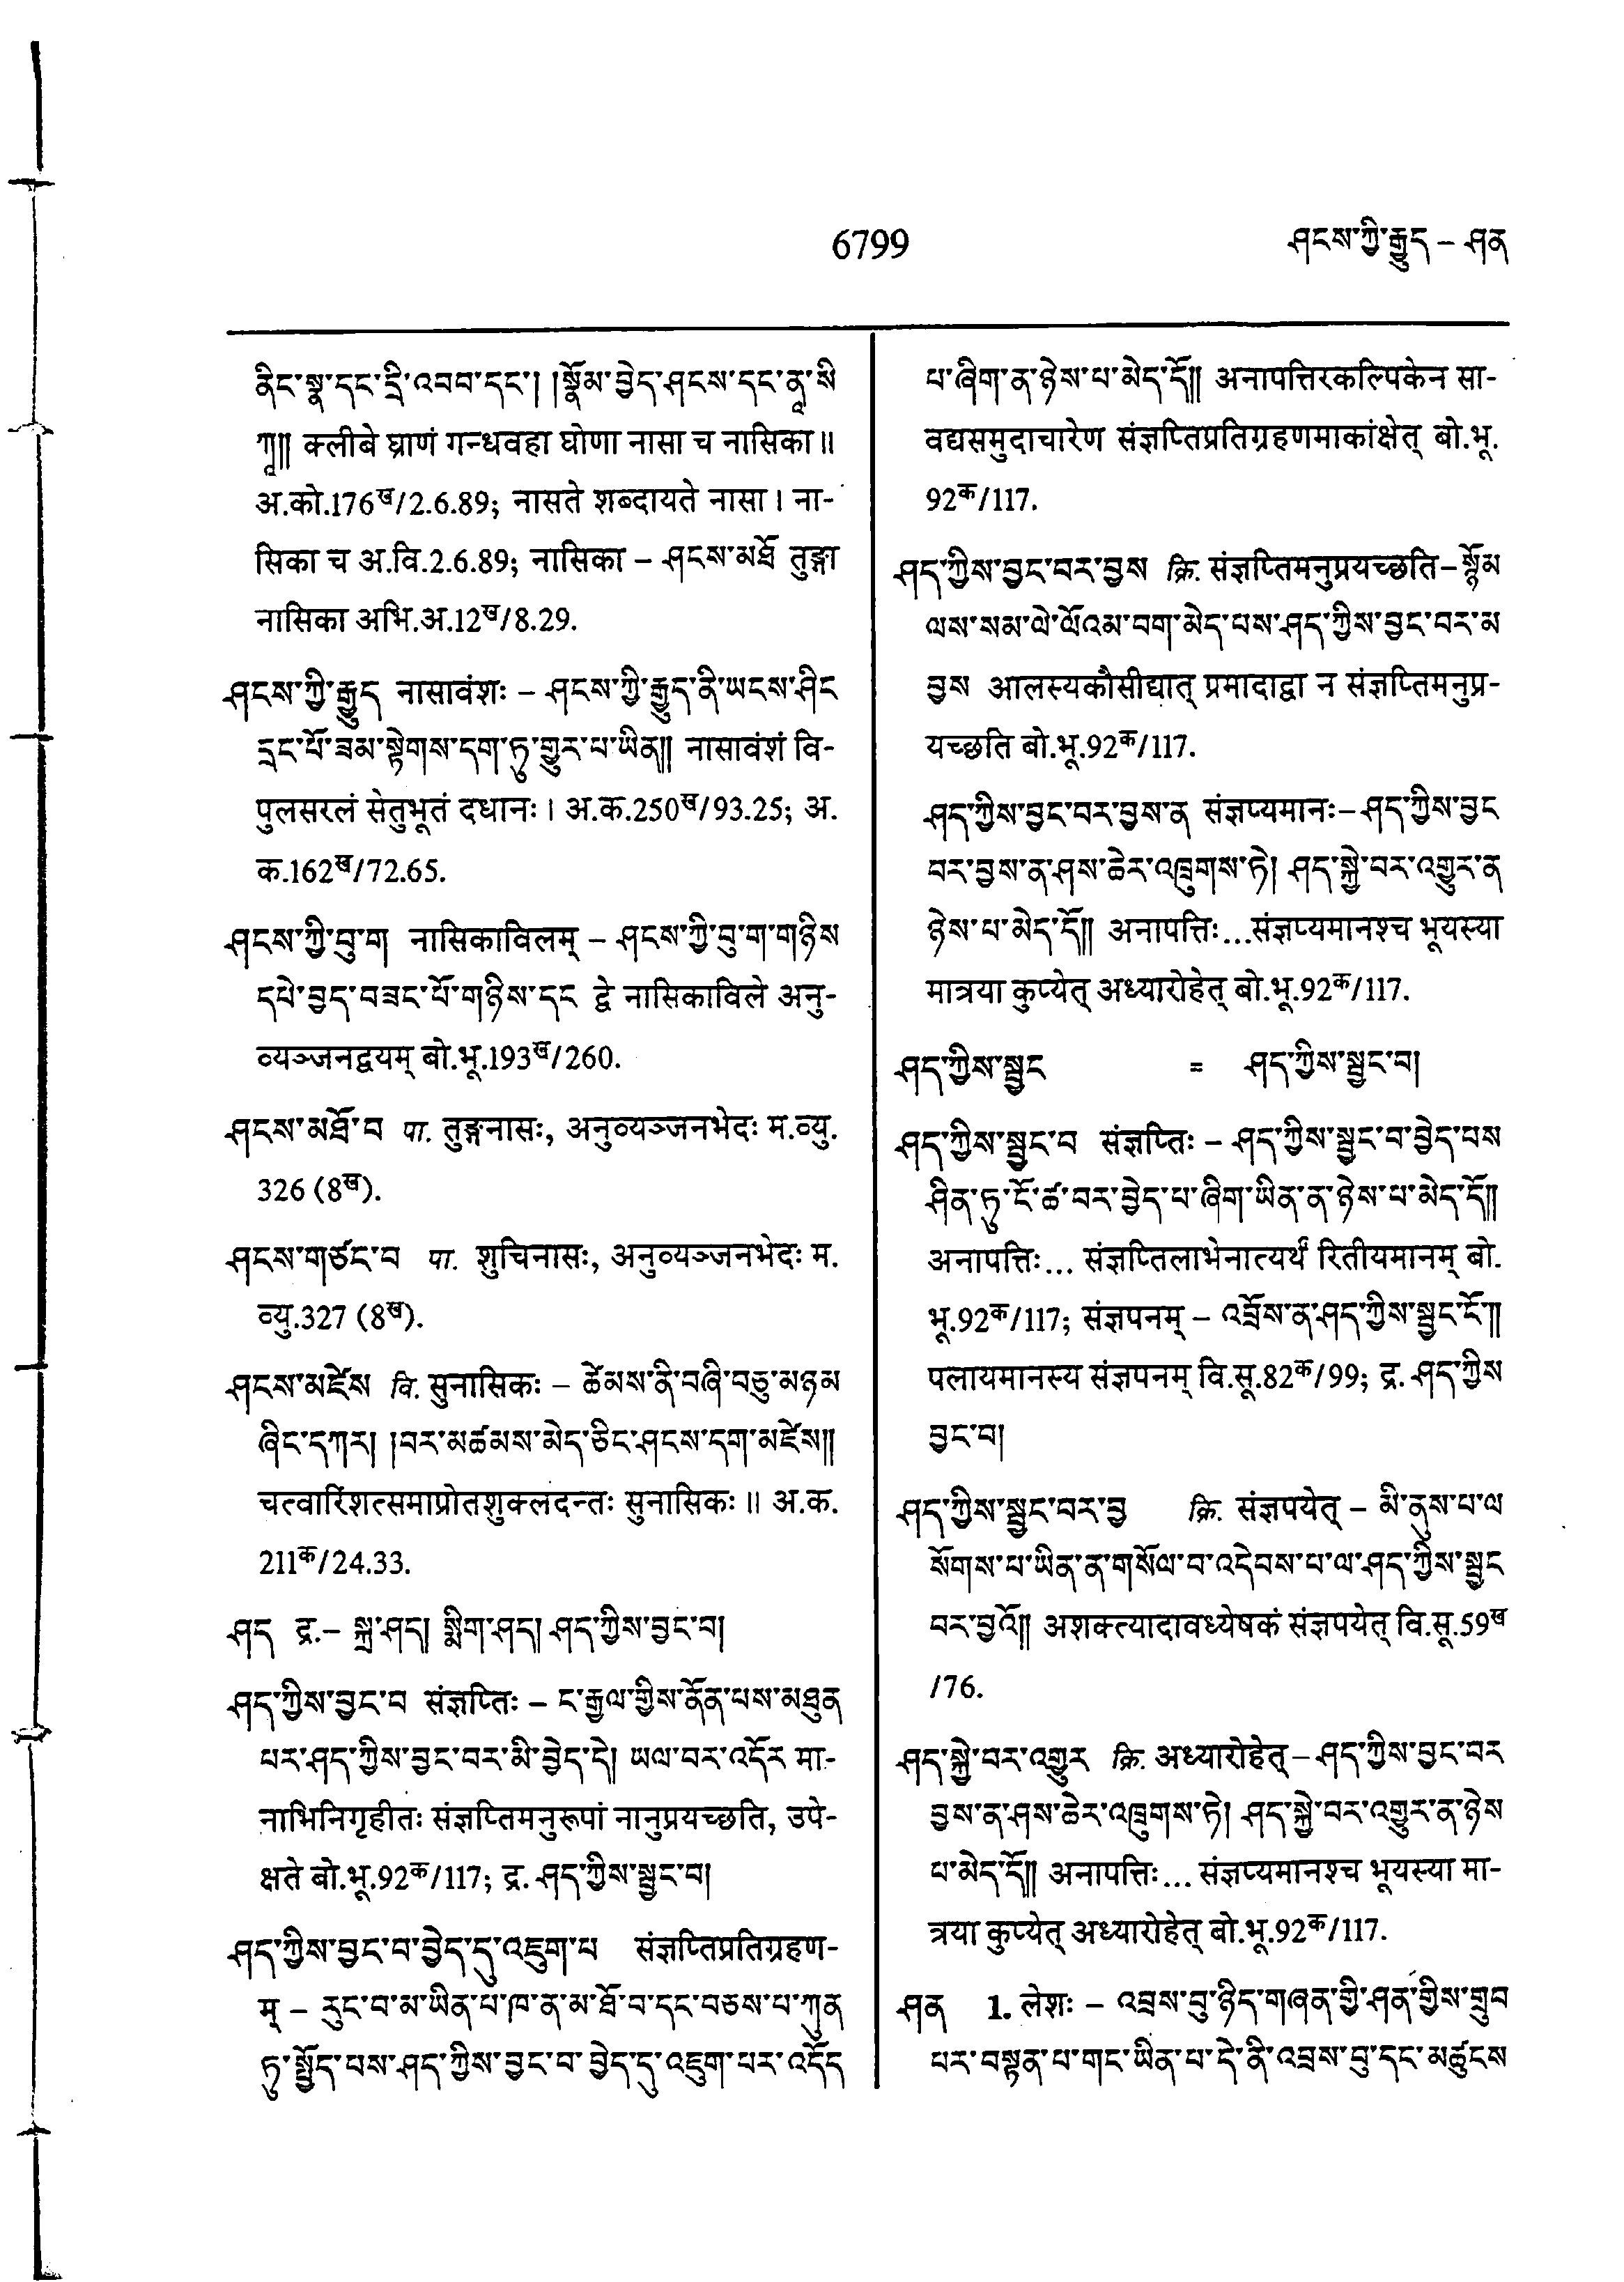 6799
ཤངས་ཀྱི་རྒྱུད – ཤན
ནིང་སྣ་དང་དྲི་འབབ་དང་། །སྣོམ་བྱེད་ཤངས་དང་ནཱ་སི
ཀཱ༎ क्लीबे घ्राणं गन्धवहा घोणा नासा च नासिका ॥
अ.को.176ख/2.6.89; नासते शब्दायते नासा । ना-
सिका च अ.वि.2.6.89; नासिका – ཤངས་མཐོ तुङ्गा
नासिका अभि.अ.12ख/8.29.
ཤངས་ཀྱི་རྒྱུད नासावंशः – ཤངས་ཀྱི་རྒྱུད་ནི་ཡངས་ཤིང
དྲང་པོ་ཟམ་སྟེགས་དག་ཏུ་གྱུར་པ་ཡིན༎ नासावंशं वि-
पुलसरलं सेतुभूतं दधानः । अ.क.250ख/93.25; अ.
क.162ख/72.65.
ཤངས་ཀྱི་བུ་ག नासिकाविलम् – ཤངས་ཀྱི་བུ་ག་གཉིས
དཔེ་བྱད་བཟང་པོ་གཉིས་དང द्वे नासिकाविले अनु-
व्यञ्जनद्वयम् बो.भू.193ख/260.
ཤངས་མཐོ་བ पा. तुङ्गनासः, अनुव्यञ्जनभेदः म.व्यु.
326 (8ख).
ཤངས་གཙང་བ पा. शुचिनासः, अनुव्यञ्जनभेदः म.
व्यु.327 (8ख).
ཤངས་མཛེས वि. सुनासिकः – ཚེམས་ནི་བཞི་བཅུ་མཉམ
ཞིང་དཀར། །བར་མཚམས་མེད་ཅིང་ཤངས་དག་མཛེས༎
चत्वारिंशत्समाप्रोतशुक्लदन्तः सुनासिकः ॥ अ.क.
211क/24.33.
ཤད द्र.– སྐྲ་ཤད། སྨིག་ཤད། ཤད་ཀྱིས་བྱང་བ།
ཤད་ཀྱིས་བྱང་བ संज्ञप्तिः – ང་རྒྱལ་གྱིས་ནོན་པས་མཐུན
པར་ཤད་ཀྱིས་བྱང་བར་མི་བྱེད་དེ། ཡལ་བར་འདོར मा-
नाभिनिगृहीतः संज्ञप्तिमनुरूपां नानुप्रयच्छति, उपे-
क्षते बो.भू.92क/117; द्र. ཤད་ཀྱིས་སྦྱང་བ།
ཤད་ཀྱིས་བྱང་བ་བྱེད་དུ་འཇུག་པ संज्ञप्तिप्रतिग्रहण-
म् – རུང་བ་མ་ཡིན་པ་ཁ་ན་མ་ཐོ་བ་དང་བཅས་པ་ཀུན
ཏུ་སྤྱོད་པས་ཤད་ཀྱིས་བྱང་བ་བྱེད་དུ་འཇུག་པར་འདོད
པ་ཞིག་ན་ཉེས་པ་མེད་དོ༎ अनापत्तिरकल्पिकेन सा-
वद्यसमुदाचारेण संज्ञप्तिप्रतिग्रहणमाकांक्षेत् बो.भू.
92क/117.
ཤད་ཀྱིས་བྱང་བར་བྱས क्रि. संज्ञप्तिमनुप्रयच्छति – སྙོམ
ལས་སམ་ལེ་ལོའམ་བག་མེད་པས་ཤད་ཀྱིས་བྱང་བར་མ
བྱས आलस्यकौसीद्यात् प्रमादाद्वा न संज्ञप्तिमनुप्र-
यच्छति बो.भू.92क/117.
ཤད་ཀྱིས་བྱང་བར་བྱས་ན संज्ञप्यमानः – ཤད་ཀྱིས་བྱང
བར་བྱས་ན་ཤས་ཆེར་འཁྲུགས་ཏེ། ཤད་སྐྱེ་བར་འགྱུར་ན
ཉེས་པ་མེད་དོ༎ अनापत्तिः...संज्ञप्यमानश्च भूयस्या
मात्रया कुप्येत् अध्यारोहेत् बो.भू.92क/117.
ཤད་ཀྱིས་སྦྱང = ཤད་ཀྱིས་སྦྱང་བ།
ཤད་ཀྱིས་སྦྱང་བ संज्ञप्तिः – ཤད་ཀྱིས་སྦྱང་བ་བྱེད་པས
ཤིན་ཏུ་ངོ་ཚ་བར་བྱེད་པ་ཞིག་ཡིན་ན་ཉེས་པ་མེད་དོ༎
अनापत्तिः... संज्ञप्तिलाभेनात्यर्थं रितीयमानम् बो.
भू.92क/117; संज्ञपनम् – འབྲོས་ན་ཤད་ཀྱིས་སྦྱང་ངོ་༎
पलायमानस्य संज्ञपनम् वि.सू.82क/99; द्र. ཤད་ཀྱིས
བྱང་བ།
ཤད་ཀྱིས་སྦྱང་བར་བྱ क्रि. संज्ञपयेत् – མི་ནུས་པ་ལ
སོགས་པ་ཡིན་ན་གསོལ་བ་འདེབས་པ་ལ་ཤད་ཀྱིས་སྦྱང
བར་བྱའོ༎ अशक्त्यादावध्येषकं संज्ञपयेत् वि.सू.59ख
/76.
ཤད་སྐྱེ་བར་འགྱུར क्रि. अध्यारोहेत् – ཤད་ཀྱིས་བྱང་བར
བྱས་ན་ཤས་ཆེར་འཁྲུགས་ཏེ། ཤད་སྐྱེ་བར་འགྱུར་ན་ཉེས
པ་མེད་དོ༎ अनापत्तिः... संज्ञप्यमानश्च भूयस्या मा-
त्रया कुप्येत् अध्यारोहेत् बो.भू.92क/117.
ཤན 1. लेशः – འབྲས་བུ་ཉིད་གཞན་གྱི་ཤན་གྱིས་གྲུབ
པར་བསྟན་པ་གང་ཡིན་པ་དེ་ནི་འབྲས་བུ་དང་མཚུངས